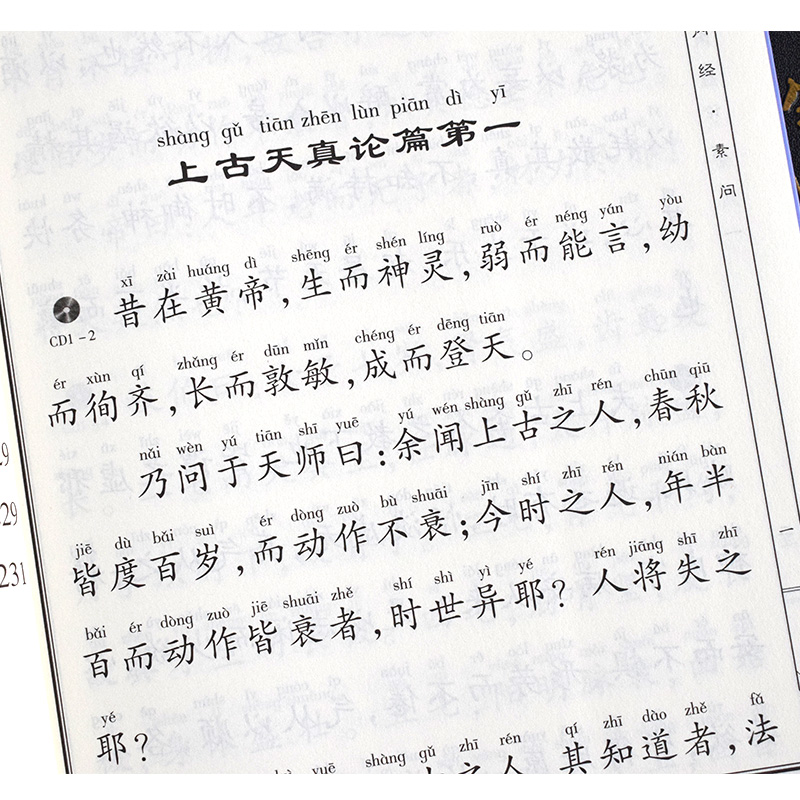 shàng gǔ tiān zhēn lùn piān dì yī
上古天真论篇第一
xī zài huáng dì shēng ér shén líng ruò ér néng yán yòu
昔在黄帝，生而神灵，弱而能言，幼
CD1-2
ér xùn qí zhǎng ér dūn mǐn chéng ér dēng tiān
而徇齐，长而敦敏，成而登天。
nǎi wèn yú tiān shī yuē yú wén shàng gǔ zhī rén chūn qiū
乃问于天师曰：余闻上古之人，春秋
jiē dù bǎi suì ér dòng zuò bù shuāi jīn shí zhī rén nián bàn
皆度百岁，而动作不衰；今时之人，年半
bǎi ér dòng zuò jiē shuāi zhě shí shì yì yé rén jiāng shī zhī
百而动作皆衰者，时世异耶？人将失之
yé
耶？
yuē shàng gǔ zhī rén qí zhī dào zhě fǎ
之人 其知道者，法
经·素问
一
9
29
231